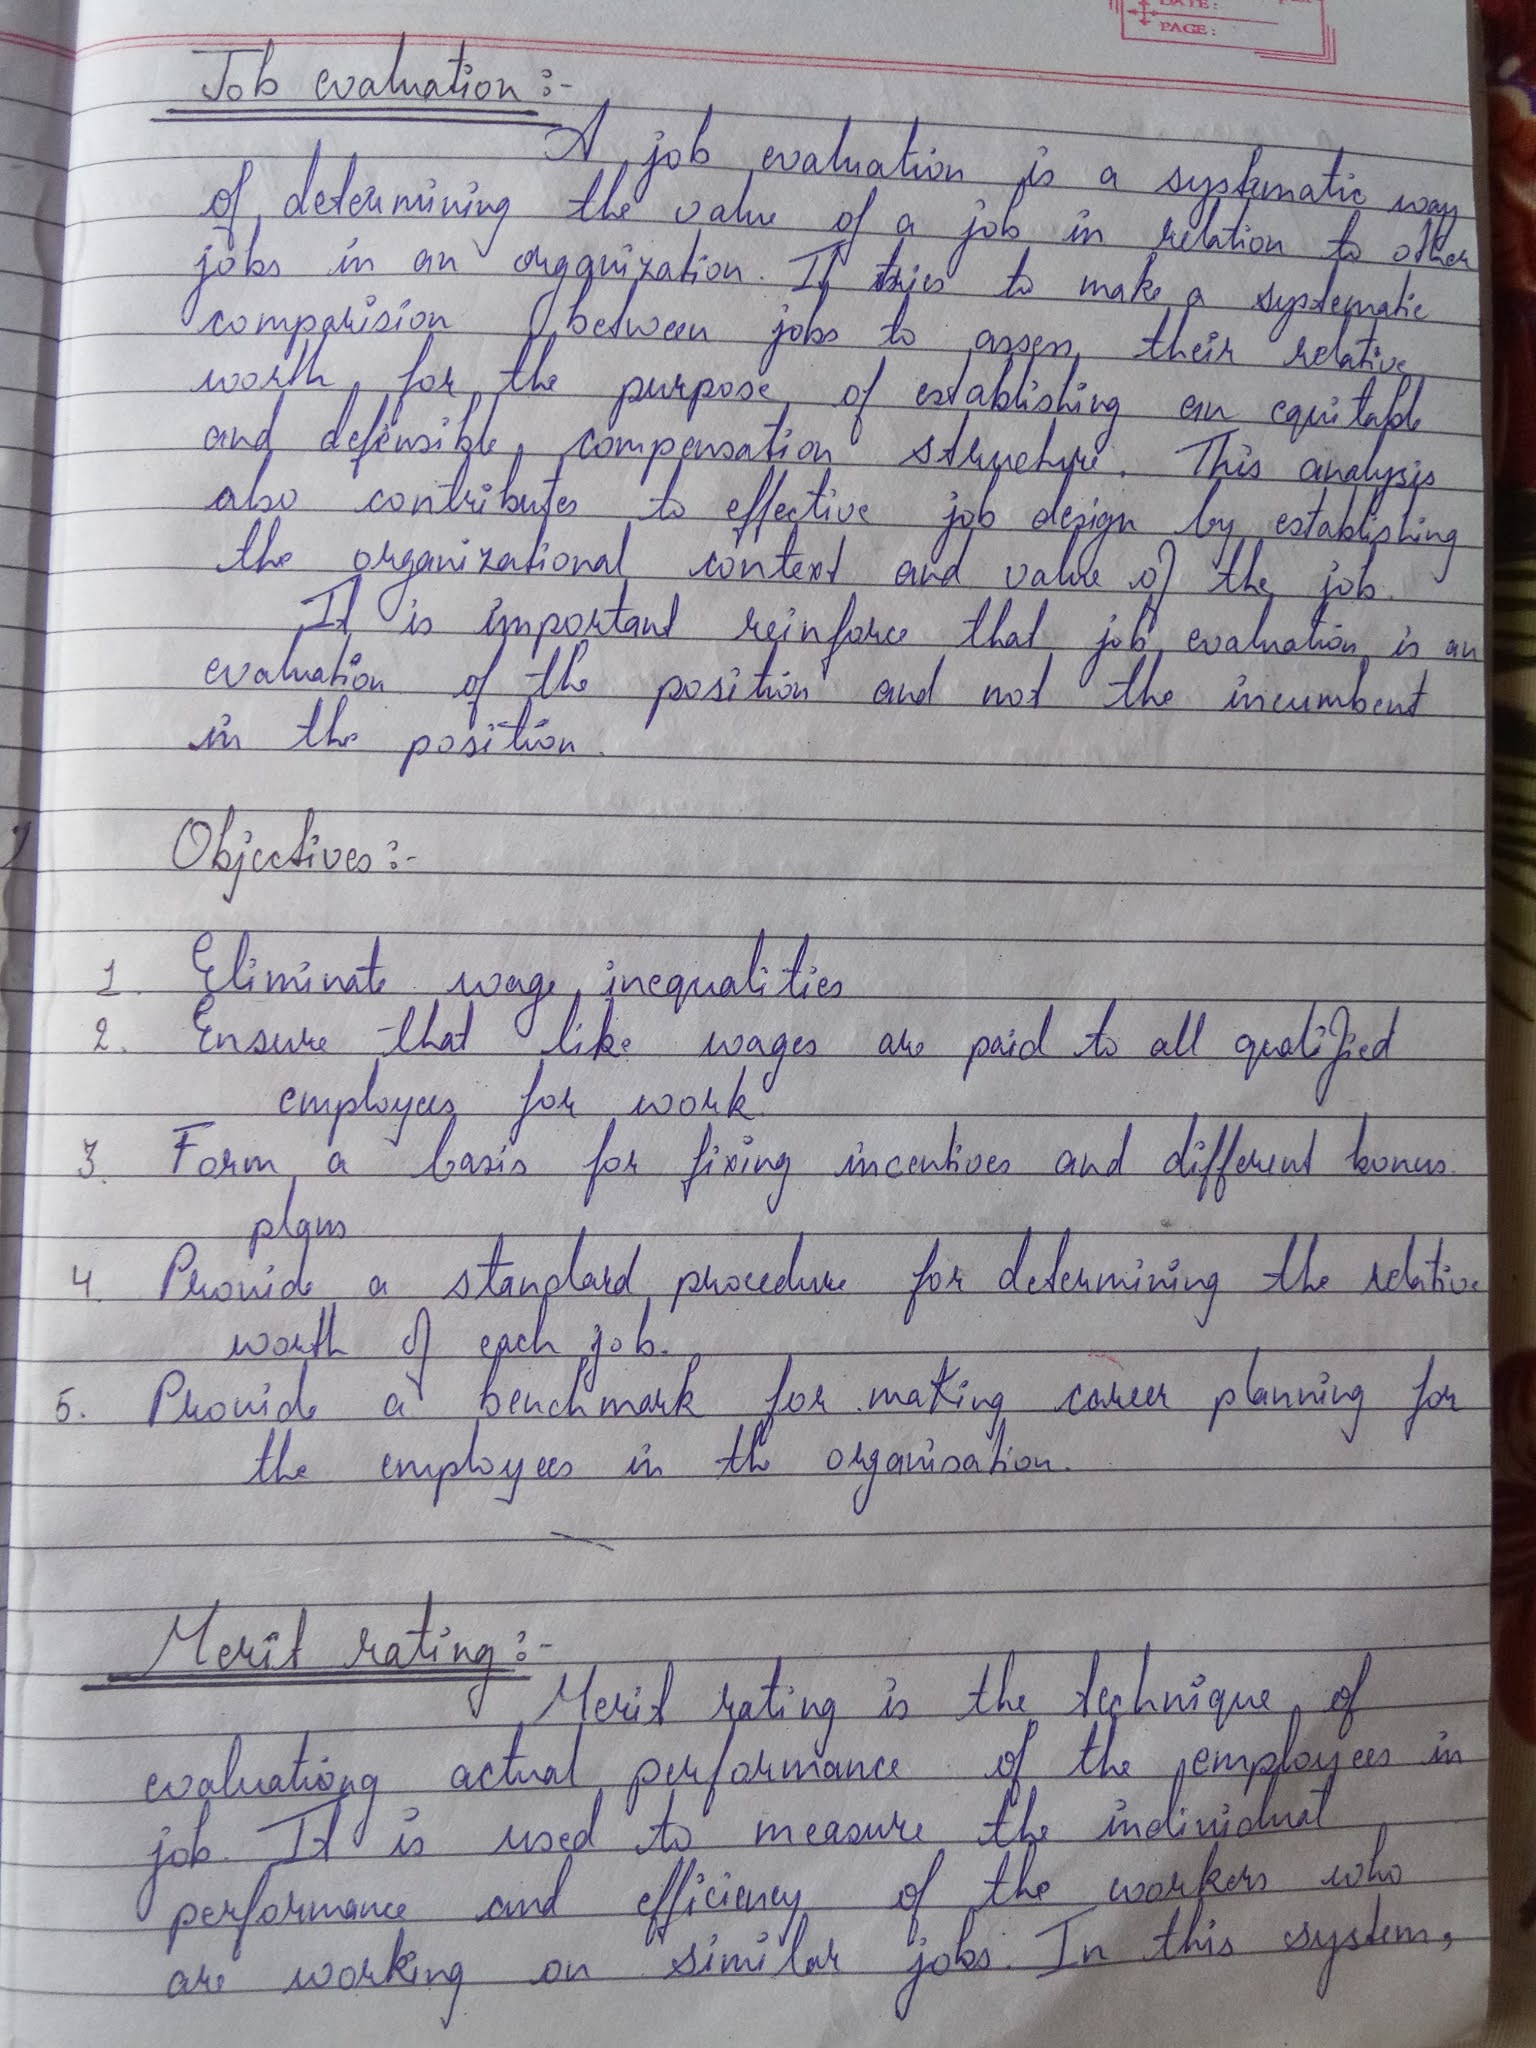 DATE:
PAGE:
Job evaluation :-
A job evaluation is a systematic way
of determining the value of a job in relation to other
jobs in an organization. It tries to make a systematic
comparision between jobs to assess their relative
worth for the purpose of establishing an equitable
and defensible compensation structure. This analysis
also contributes to effective job design by establishing
the organizational context and value of the job.
It is important reinforce that job evaluation is an
evaluation of the position and not the incumbent
in the position.
Objectives :-
1. Eliminate wage inequalities
2. Ensure that like wages are paid to all qualified
employees for work.
3. Form a basis for fixing incentives and different bonus
plans
4. Provide a standard procedure for determining the relative
worth of each job.
5. Provide a benchmark for making career planning for
the employees in the organisation.
Merit rating :-
Merit rating is the technique of
evaluationg actual performance of the employees in
job. It is used to measure the individual
performance and efficiency of the workers who
are working on similar jobs. In this system,